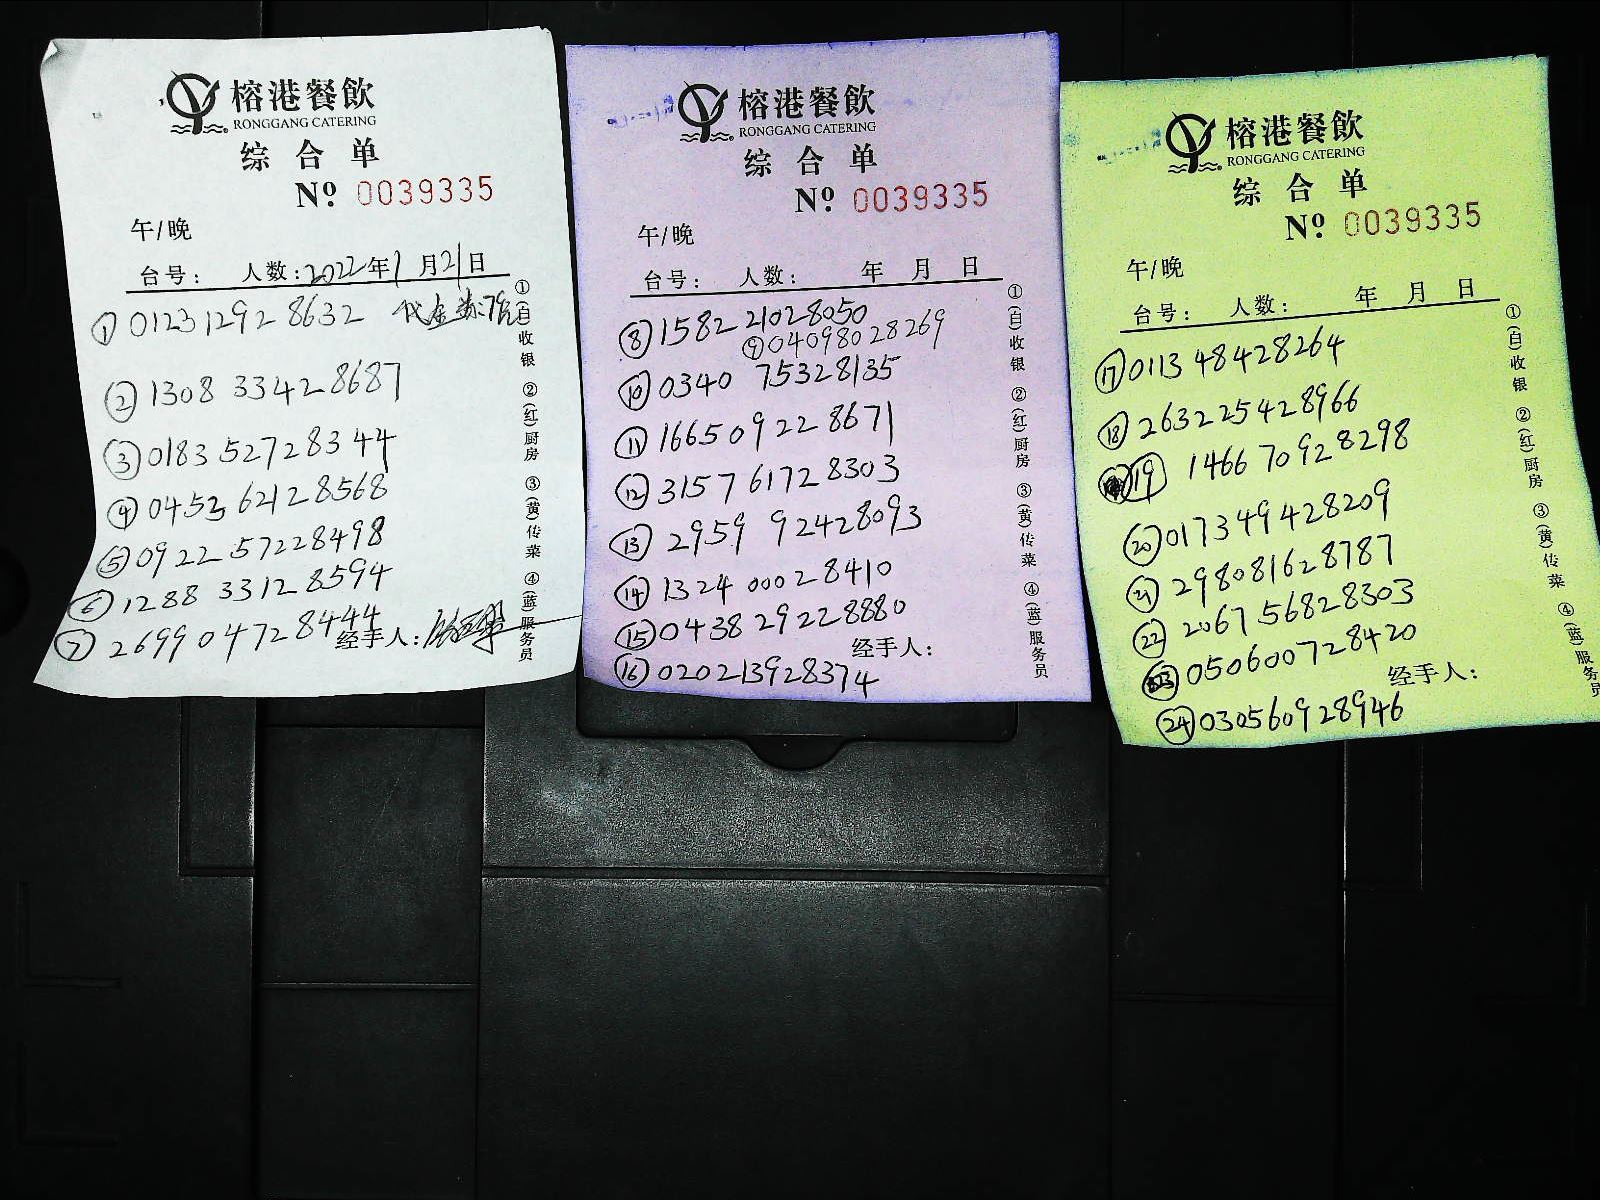 榕港餐飲
RONGGANG CATERING
综合单
Nº 0039335
午/晚
台号： 人数：2022年1月21日
① 012312928632 代金券:7张
② 130833428687
③ 018352728344
④ 045362128568
⑤ 092257228498
⑥ 128833128594
⑦ 269904728444
经手人：
①(白)收银 ②(红)厨房 ③(黄)传菜 ④(蓝)服务员
榕港餐飲
RONGGANG CATERING
综合单
Nº 0039335
午/晚
台号： 人数： 年 月 日
⑧ 158221028050
⑨ 04098028269
⑩ 034075328135
⑪ 166509228671
⑫ 315761728303
⑬ 295992428093
⑭ 132400028410
⑮ 043829228880
经手人：
⑯ 020213928374
①(白)收银 ②(红)厨房 ③(黄)传菜 ④(蓝)服务员
榕港餐飲
RONGGANG CATERING
综合单
Nº 0039335
午/晚
台号： 人数： 年 月 日
⑰ 011348428264
⑱ 263225428966
⑲ 146670928298
⑳ 017349428209
㉑ 298081628787
㉒ 206756828303
㉓ 050600728420
经手人：
㉔ 030560928946
①(白)收银 ②(红)厨房 ③(黄)传菜 ④(蓝)服务员